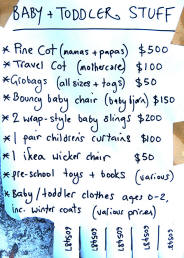 BABY + TODDLER STUFF
* Pine Cot (mamas + papas) $500
* Travel Cot (mothercare) $100
* Grobags (all sizes + togs) $50
* Bouncy baby chair (baby björn) $150
* 2 wrap-style baby slings $200
* 1 pair children's curtains $100
* 1 ikea wicker chair $50
* pre-school toys + books (various)
* Baby/toddler clothes ages 0-2,
inc. winter coats (various prices)